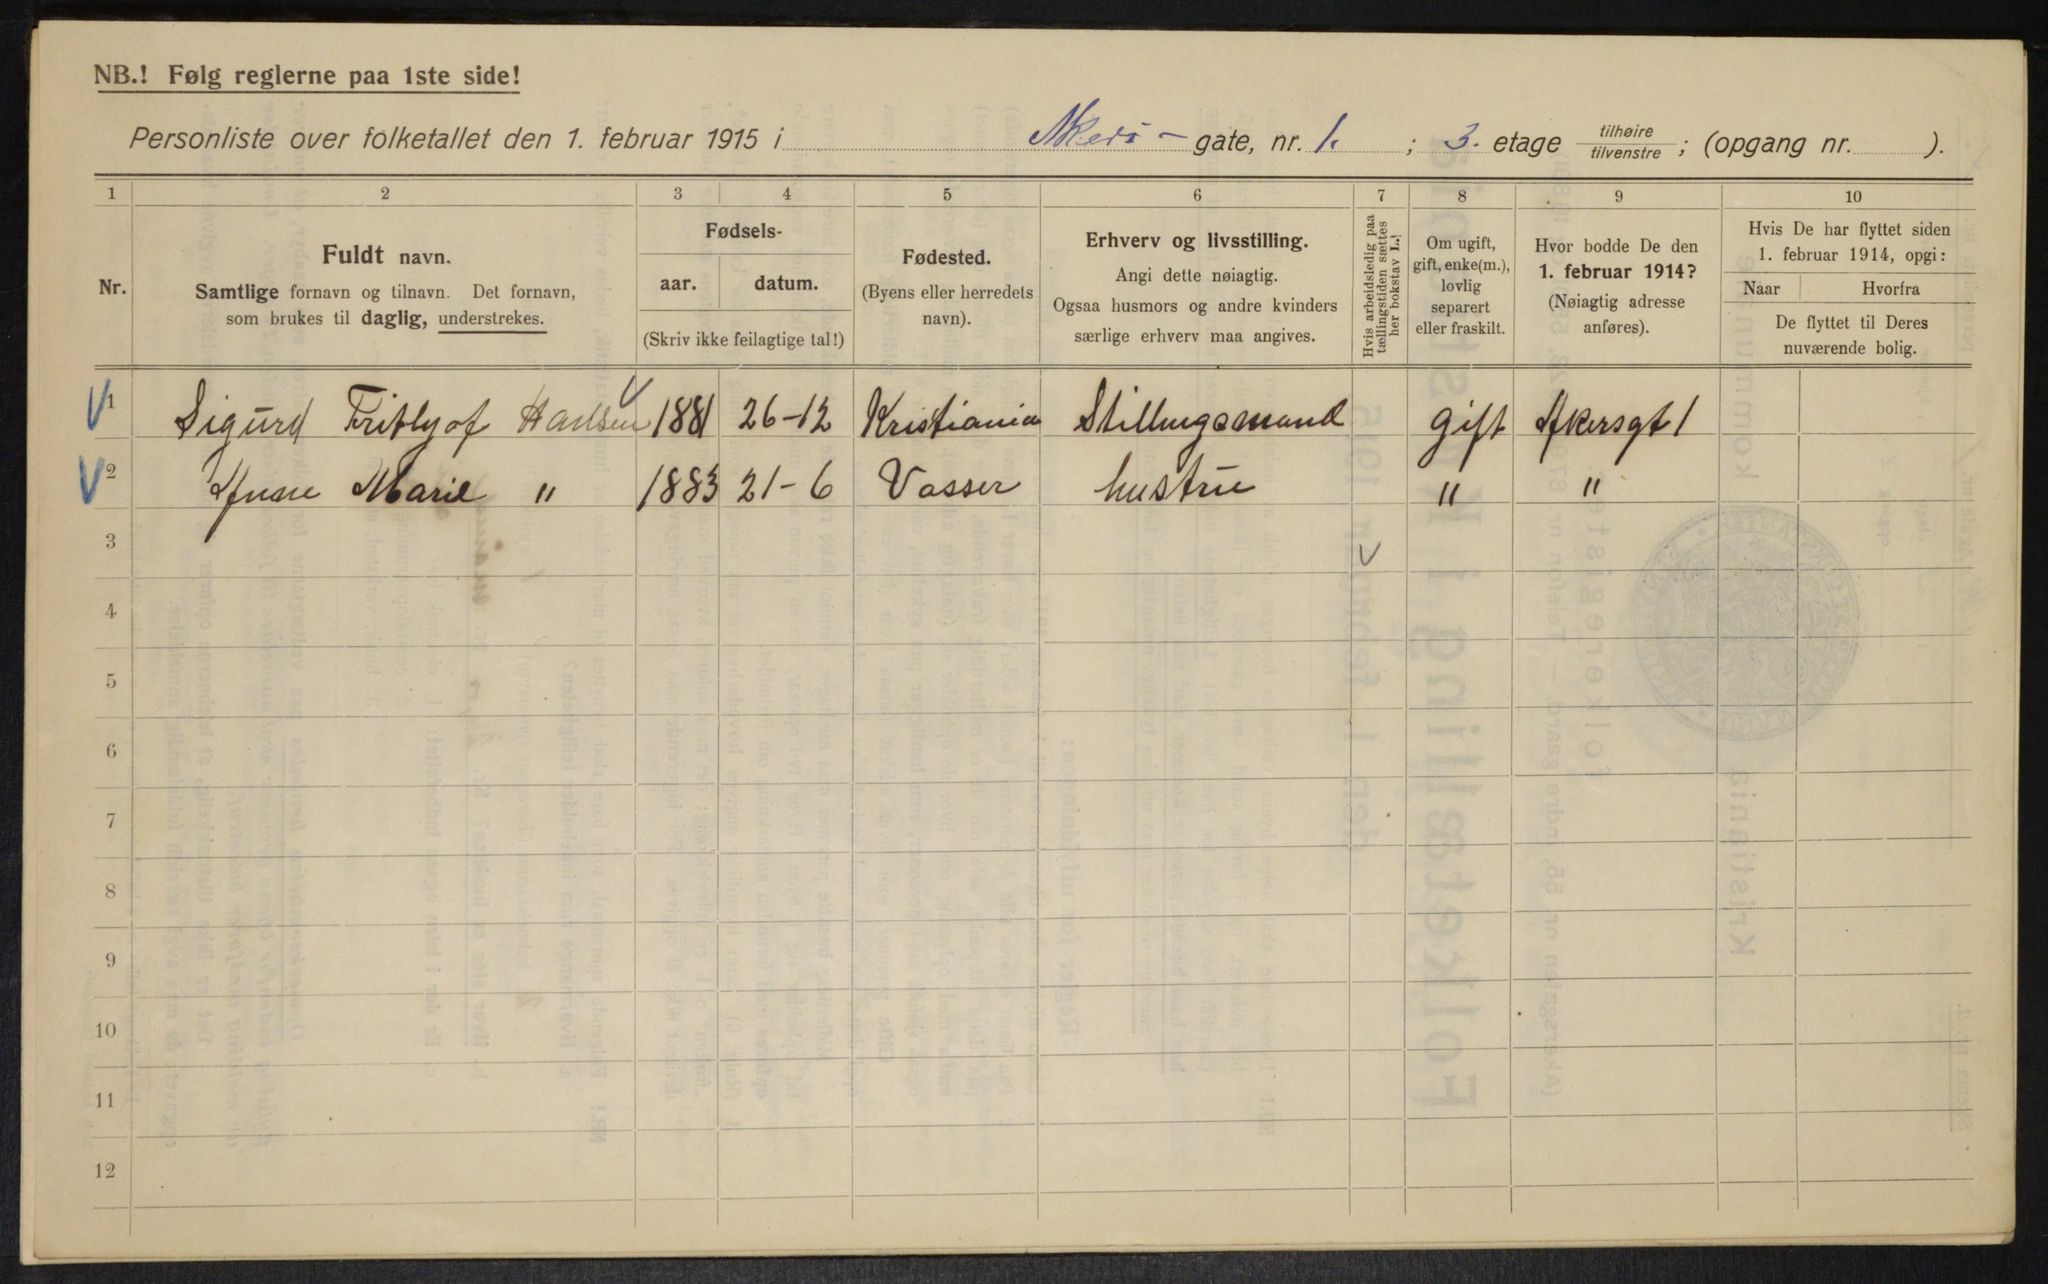 NB.! Følg reglerne paa 1ste side!
Personliste over folketallet den 1. februar 1915 i Akers - gate, nr. 1. ; 3. etage tilhøire / tilvenstre ; (opgang nr. ).
1 2 3 4 5 6 7 8 9 10
Nr.
Fuldt navn.
Samtlige fornavn og tilnavn. Det fornavn,
som brukes til daglig, understrekes.
Fødsels-
aar. datum.
(Skriv ikke feilagtige tal!)
Fødested.
(Byens eller herredets
navn).
Erhverv og livsstilling.
Angi dette nøiagtig.
Ogsaa husmors og andre kvinders
særlige erhverv maa angives.
Hvis arbeidsledig paa
tællingstiden sættes
her bokstav L.!
Om ugift,
gift, enke(m.),
lovlig
separert
eller fraskilt.
Hvor bodde De den
1. februar 1914?
(Nøiagtig adresse
anføres).
Hvis De har flyttet siden
1. februar 1914, opgi:
Naar Hvorfra
De flyttet til Deres
nuværende bolig.
1 Sigurd Hansen 1881 26-12 Kristiania Stillingsmand gift Akersgt 1
2 Anne Marie " 1883 21-6 Vasser hustru " "
3
4
5
6
7
8
9
10
11
12